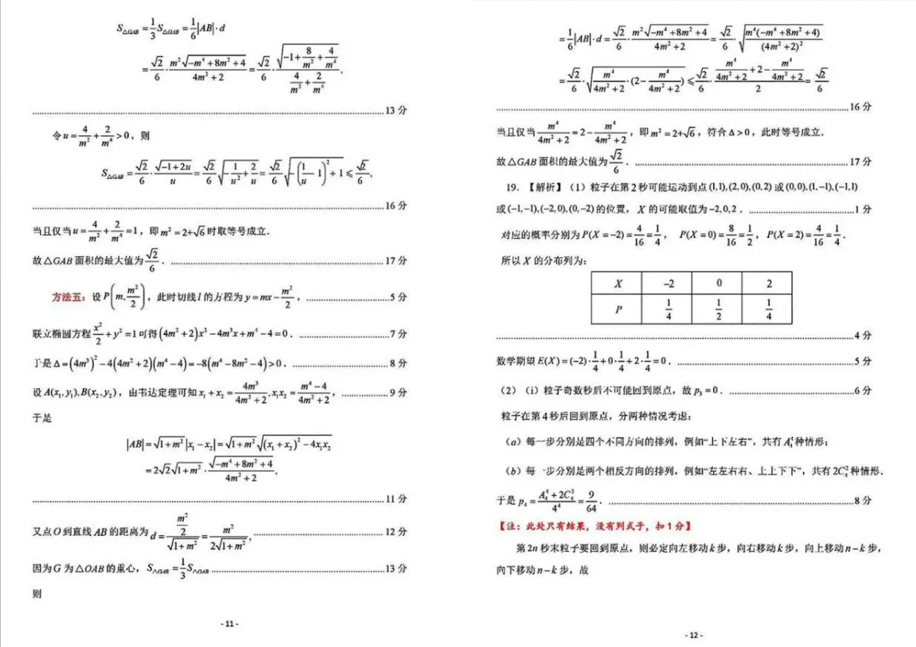 S△GAB = 1/3 S△OAB = 1/6 |AB|·d
= √2/6 · m²√(-m⁴+8m²+4)/(4m²+2) = √2/6 · √(-1+8/m²+4/m⁴)/(4/m²+2/m⁴).
13 分
令 u = 4/m² + 2/m⁴ > 0，则
S△GAB = √2/6 · √(-1+2u)/u = √2/6 √(-1/u²+2/u) = √2/6 √(-(1/u-1)²+1) ≤ √2/6.
16 分
当且仅当 u = 4/m² + 2/m⁴ = 1，即 m² = 2+√6 时取等号成立.
故△GAB 面积的最大值为 √2/6. 17 分
方法五：设 P(m, m²/2)，此时切线 l 的方程为 y = mx - m²/2， 5 分
联立椭圆方程 x²/2 + y² = 1 可得 (4m²+2)x² - 4m³x + m⁴ - 4 = 0. 7 分
于是 Δ = (4m³)² - 4(4m²+2)(m⁴-4) = -8(m⁴-8m²-4) > 0. 8 分
设 A(x₁,y₁), B(x₂,y₂)，由韦达定理可知 x₁+x₂ = 4m³/(4m²+2), x₁x₂ = (m⁴-4)/(4m²+2)， 9 分
于是
|AB| = √(1+m²)|x₁-x₂| = √(1+m²)√((x₁+x₂)²-4x₁x₂)
= 2√2√(1+m²) · √(-m⁴+8m²+4)/(4m²+2).
11 分
又点 O 到直线 AB 的距离为 d = (m²/2)/√(1+m²) = m²/(2√(1+m²))， 12 分
因为 G 为△OAB 的重心，S△GAB = 1/3 S△OAB 13 分
则
- 11 -
= 1/6 |AB|·d = √2/6 · m²√(-m⁴+8m²+4)/(4m²+2) = √2/6 · √(m⁴(-m⁴+8m²+4)/(4m²+2)²)
= √2/6 · √(m⁴/(4m²+2)·(2-m⁴/(4m²+2))) ≤ √2/6 · (m⁴/(4m²+2)+2-m⁴/(4m²+2))/2 = √2/6
16 分
当且仅当 m⁴/(4m²+2) = 2 - m⁴/(4m²+2)，即 m² = 2+√6，符合 Δ > 0，此时等号成立.
故△GAB 面积的最大值为 √2/6. 17 分
19. 【解析】（1）粒子在第 2 秒可能运动到点 (1,1),(2,0),(0,2) 或 (0,0),(1,-1),(-1,1)
或 (-1,-1),(-2,0),(0,-2) 的位置，X 的可能取值为 -2,0,2. 1 分
对应的概率分别为 P(X=-2) = 4/16 = 1/4， P(X=0) = 8/16 = 1/2， P(X=2) = 4/16 = 1/4.
所以 X 的分布列为：
X -2 0 2
P 1/4 1/2 1/4
4 分
数学期望 E(X) = (-2)·1/4 + 0·1/2 + 2·1/4 = 0. 5 分
（2）（i）粒子奇数秒后不可能回到原点，故 p₃ = 0. 6 分
粒子在第 4 秒后回到原点，分两种情况考虑：
（a）每一步分别是四个不同方向的排列，例如“上下左右”，共有 A₄⁴ 种情形；
（b）每一步分别是两个相反方向的排列，例如“左左右右、上上下下”，共有 2C₄² 种情形.
于是 p₄ = (A₄⁴+2C₄²)/4⁴ = 9/64. 8 分
【注：此处只有结果，没有列式子，扣 1 分】
第 2n 秒末粒子要回到原点，则必定向左移动 k 步，向右移动 k 步，向上移动 n-k 步，
向下移动 n-k 步，故
- 12 -